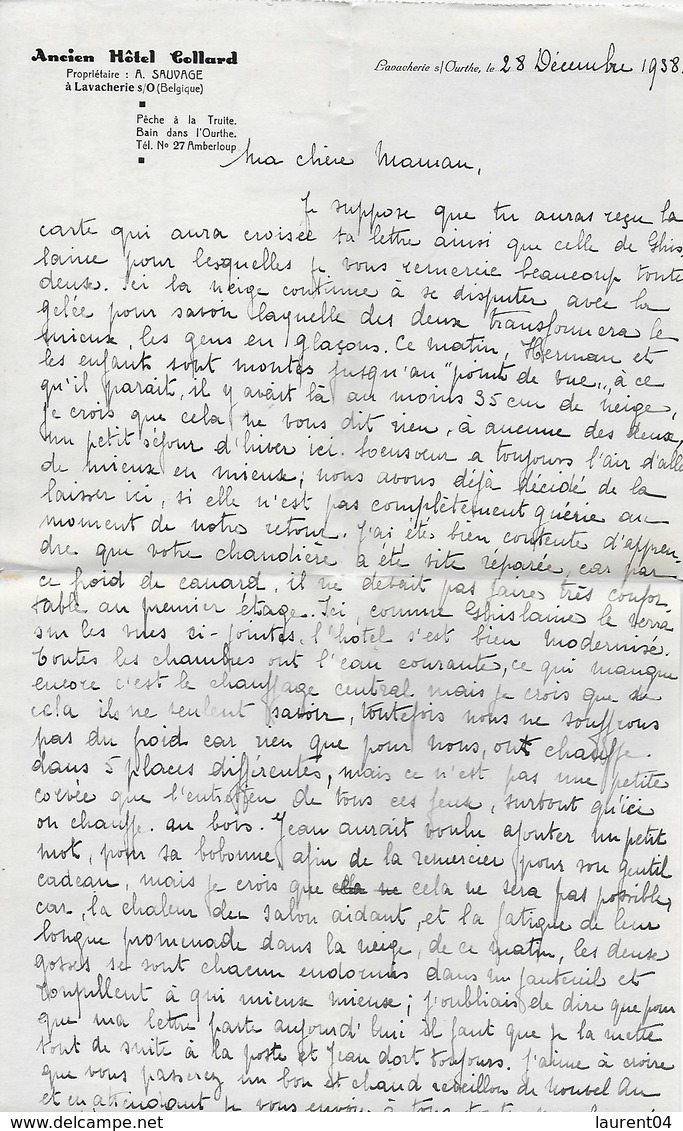 Ancien Hôtel Collard
Propriétaire : A. SAUVAGE
à Lavacherie s/O (Belgique)
Pêche à la Truite.
Bain dans l'Ourthe.
Tél. No 27 Amberloup
Lavacherie s/Ourthe, le 28 Décembre 1938.
Ma chère Maman,
Je suppose que tu auras reçu la
carte qui aura croisée ta lettre ainsi que celle de Ghis
laine pour lesquelles je vous remercie beaucoup toute
deux. Ici la neige continue à se disputer avec la
gelée pour savoir laquelle des deux transformera le
mieux, les gens en glaçons. Ce matin, Herman et
les enfants sont montés jusqu'au "point de vue", à ce
qu'il parait, il y avait là au moins 35 cm de neige,
je crois que cela ne vous dit rien, à aucune des deux,
un petit séjour d'hiver ici. a toujours l'air d'alle
de mieux en mieux; nous avons déjà décidé de la
laisser ici, si elle n'est pas complètement guérie au
moment de notre retour. J'ai été bien contente d'appren-
dre que votre chaudière a été vite réparée, car par
ce froid de canard, il ne devait pas faire très confor
table au premier étage. Ici, comme Ghislaine le verra
sur les vues ci-jointes, l'hôtel s'est bien modernisé.
Toutes les chambres ont l'eau courante, ce qui manque
encore c'est le chauffage central mais je crois que de
cela ils ne veulent savoir, toutefois nous ne souffrons
pas du froid car rien que pour nous, ont chauffe
dans 5 places différentes, mais ce n'est pas une petite
corvée que l'entretien de tous ces feux, surtout qu'ici
on chauffe au bois. Jean aurait voulu ajouter un petit
mot, pour sa bobonne, afin de la remercier pour son gentil
cadeau, mais je crois que cela ne sera pas possible,
car, la chaleur du salon aidant, et la fatigue de leur
longue promenade dans la neige, de ce matin, les deux
gosses se sont chacun endormis dans un fauteuil et
roupillent à qui mieux mieux; j'oubliais de dire que pour
que ma lettre parte aujourd'hui il faut que je la mette
tout de suite à la poste et Jean dort toujours. J'aime à croire
que vous passerez un bon et chaud réveillon de Nouvel An
et en attendant je vous envoie à tous
laurent04